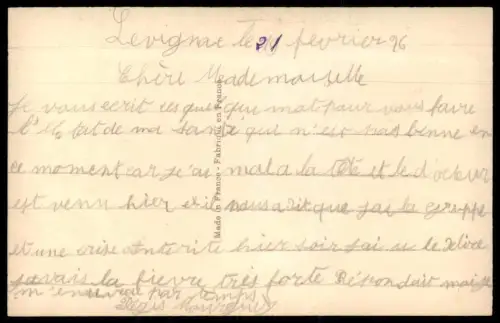 Levignac le 21 février 26
Chère Mademoiselle
Je vous ecrit ces quelque mot pour vous faire
l'etat de ma santé qui n'est pas bonne en
ce moment car j'ai mal a la tête et le docteur
est venu hier et il nous a dit que j'ai la grippe
et une crise hier soir j'ai u le delire
javais la fievre très forte Réponder moi
m'ennuie par temps
Made in France - Fabriqué en France